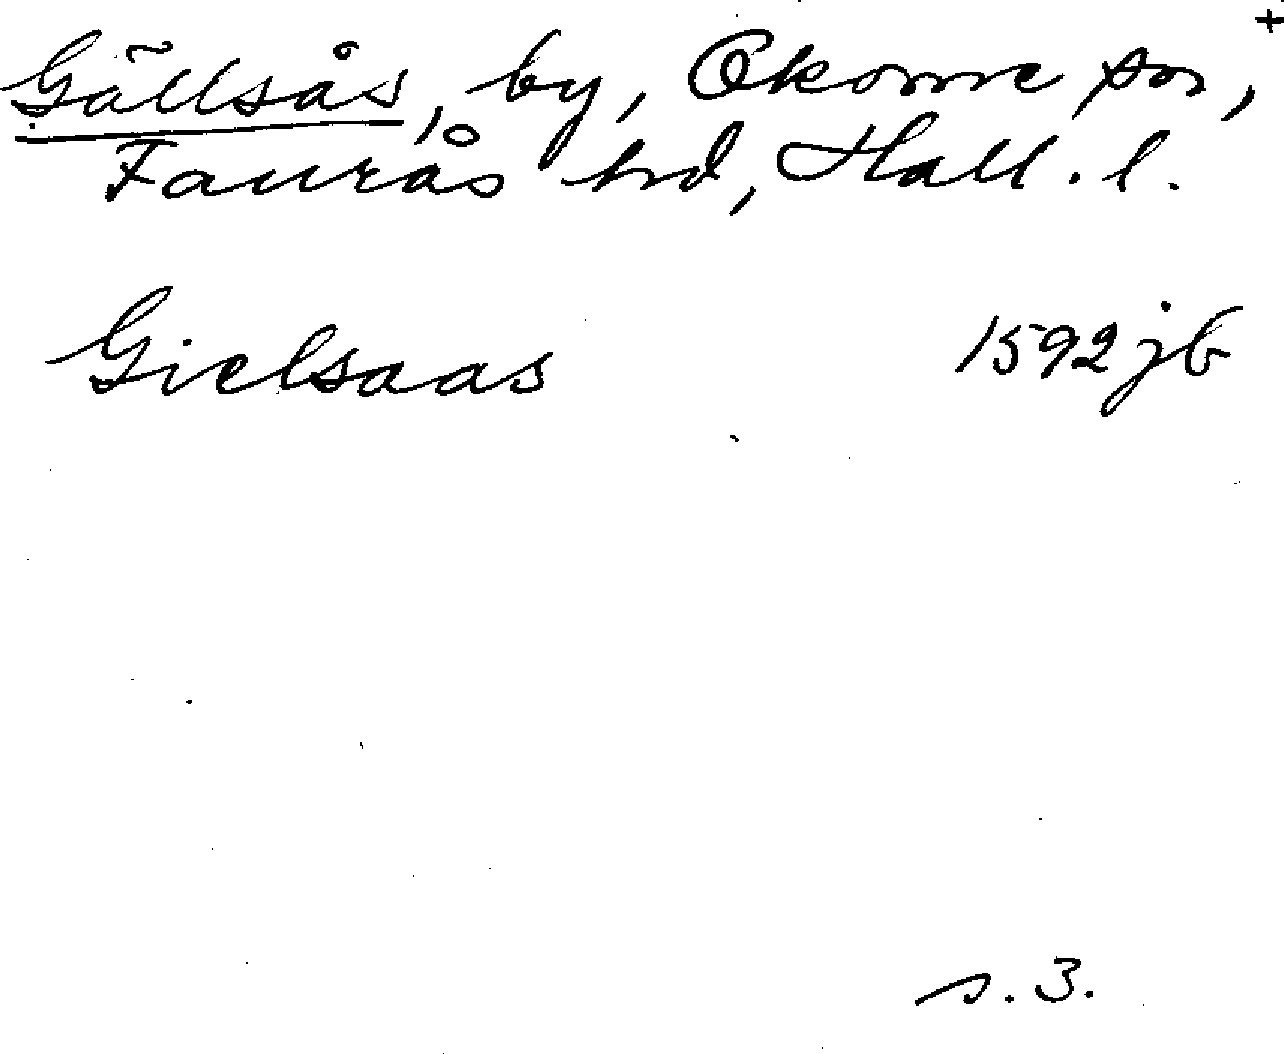 Gällsås, by, Okome sn, +
Faurås hd, Hall. l.
Gielsaas 1592 jb
s. 3.